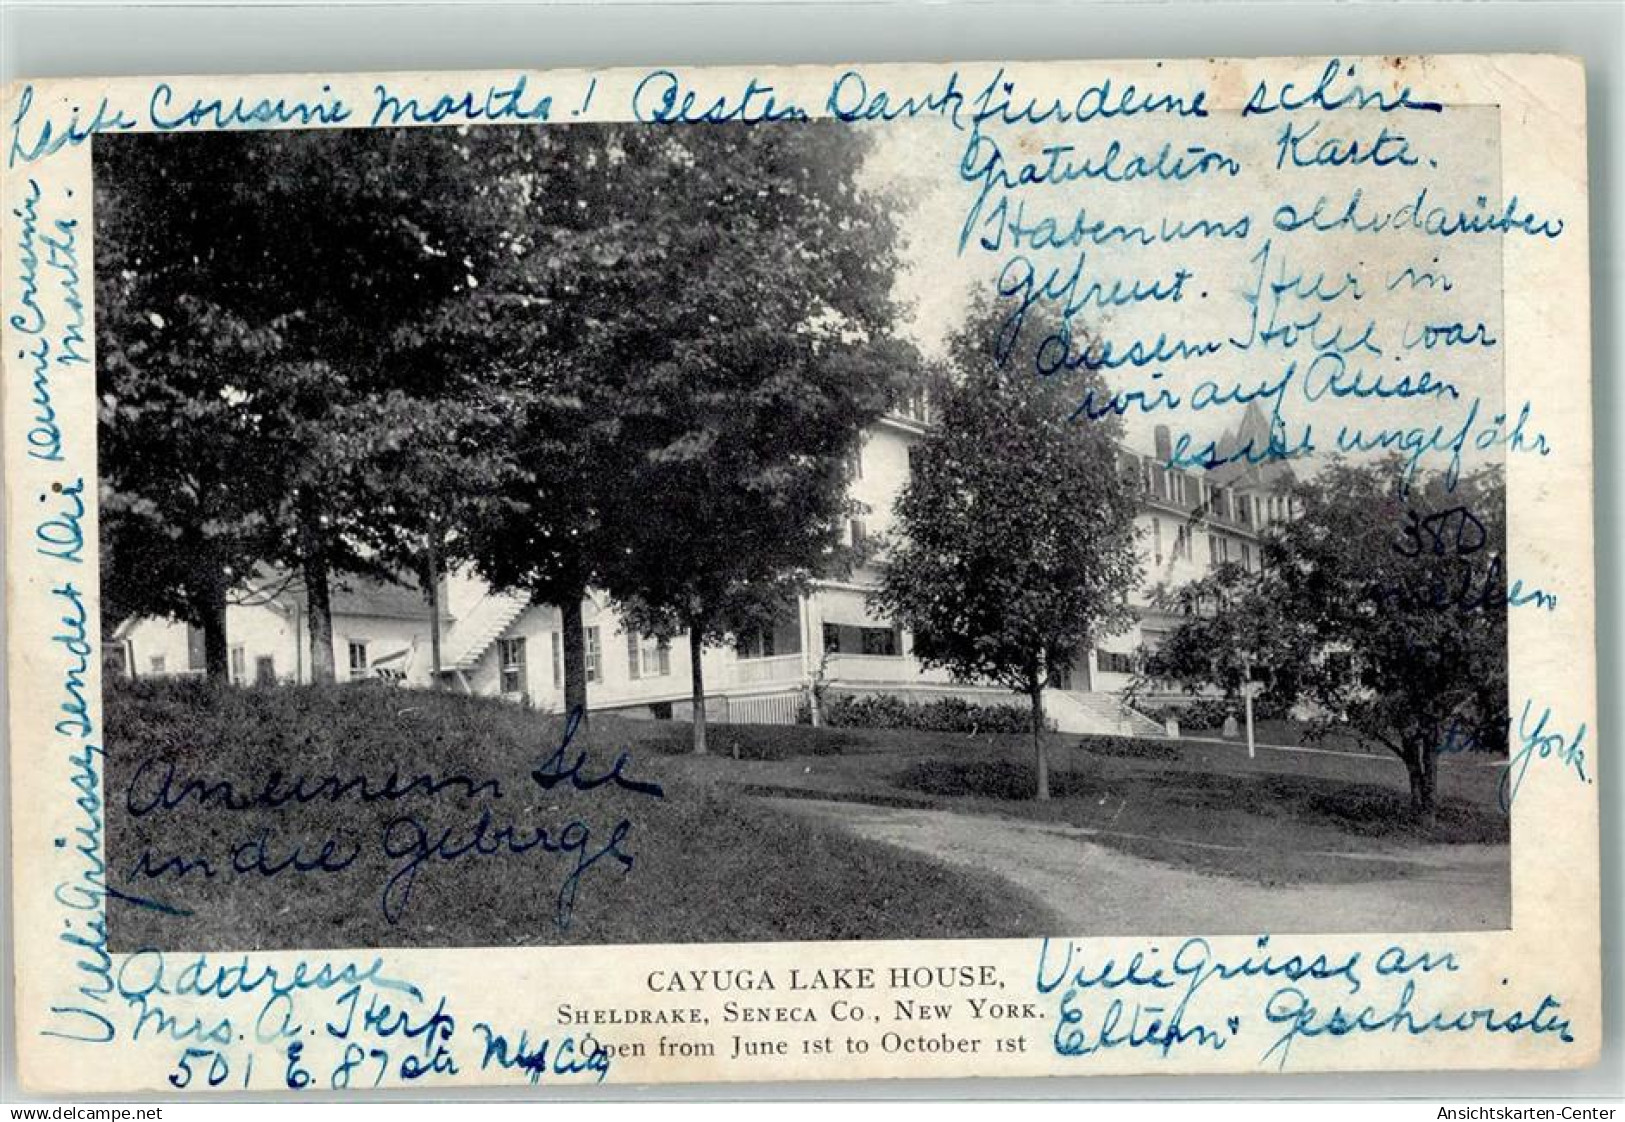 Leibe Cousine Martha! Besten Dank für deine schöne
Gratulation Karte.
Haben uns sehr darüber
gefreut. Hier in
diesem Hotel war
wir auf Reisen
es ist ungefähr
380
meilen
York.
An einem See
in die Gebirge
Viele Grüsse sendet Dir Deine Cousine
Martha.
Addresse
Mrs. A. Herp
501 E. 87 str NY City
CAYUGA LAKE HOUSE,
SHELDRAKE, SENECA CO., NEW YORK.
Open from June 1st to October 1st
Viele Grüsse an
Eltern Geschwister
Ansichtskarten-Center